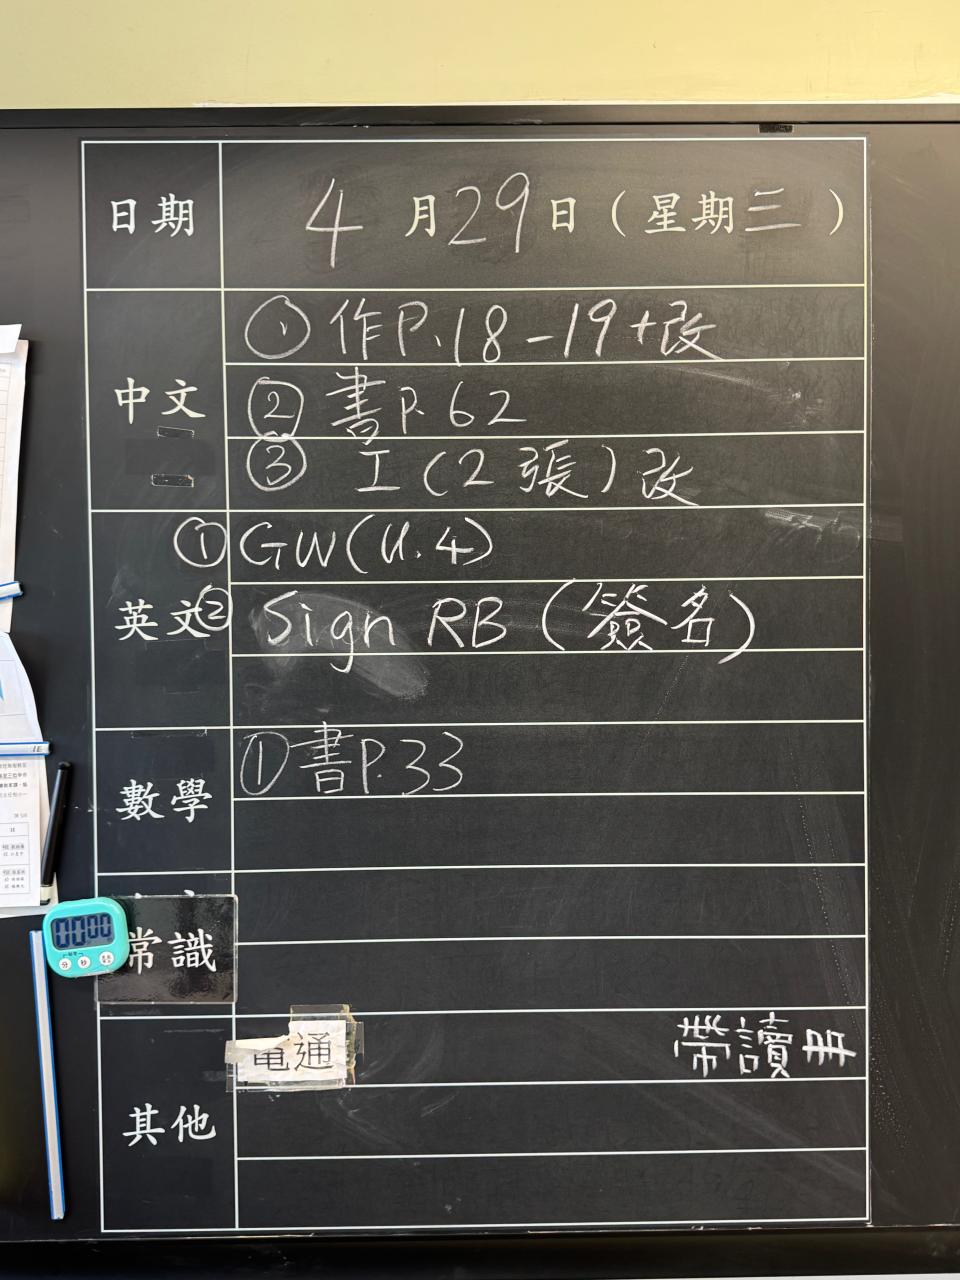 日期 4月29日(星期三)
中文
①作P.18-19+改
②書P.62
③工(2張)改
英文
①GW(U.4)
②Sign RB(簽名)
數學
①書P.33
常識
其他
電通 帶讀冊
00 00
分 秒
1E